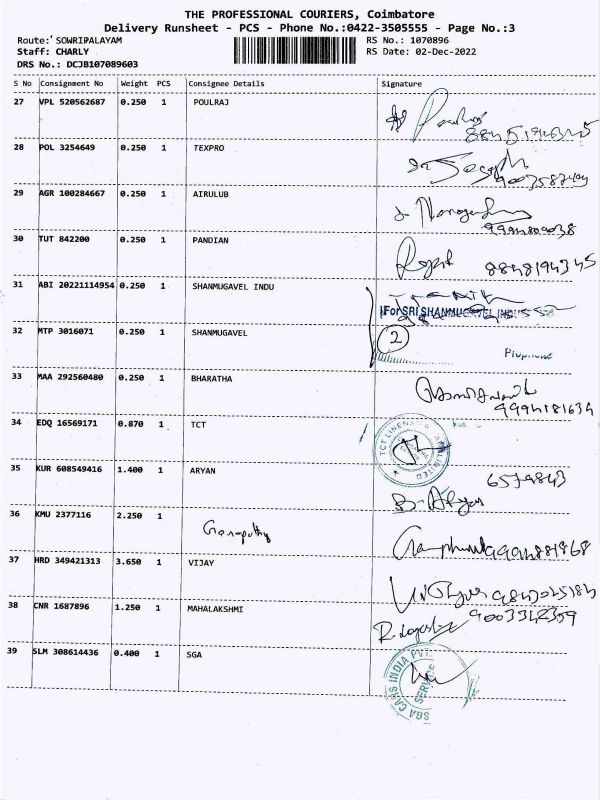 THE PROFESSIONAL COURIERS, Coimbatore
Delivery Runsheet - PCS - Phone No.:0422-3505555 - Page No.:3
Route: SOWRIPALAYAM
RS No.: 1070896
Staff: CHARLY
RS Date: 02-Dec-2022
DRS No.: DCJB107089603
S No Consignment No Weight PCS Consignee Details Signature
27 VPL 520562687 0.250 1 POULRAJ
28 POL 3254649 0.250 1 TEXPRO
29 AGR 100284667 0.250 1 AIRULUB
30 TUT 842200 0.250 1 PANDIAN 8848194345
31 ABI 20221114954 0.250 1 SHANMUGAVEL INDU
For SRI SHANMUGAVEL
32 MTP 3016071 0.250 1 SHANMUGAVEL 2
33 MAA 292560480 0.250 1 BHARATHA 9994181634
34 EDQ 16569171 0.870 1 TCT
TCT LINEN LIMITED
35 KUR 608549416 1.400 1 ARYAN 6579843
36 KMU 2377116 2.250 1 Ganapathy
37 HRD 349421313 3.650 1 VIJAY
38 CNR 1687896 1.250 1 MAHALAKSHMI 9003342359
39 SLM 308614436 0.400 1 SGA
SGA CARS INDIA PVT.
SERVICE